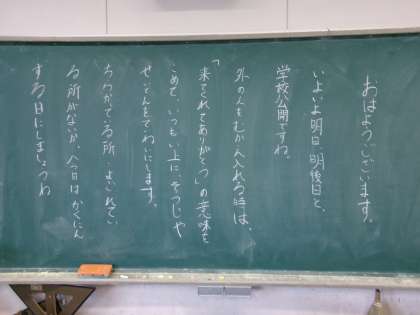 おはようございます。
いよいよ明日、明後日と、
学校公開ですね。
外の人をむかえ入れる時は、
「来てくれてありがとう」の意味を
こめて、いつも以上に、そうじや
せいとんをていねいにします。
ちらかっている所、よごれてい
る所がないか、今日はかくにん
する日にしましょうね